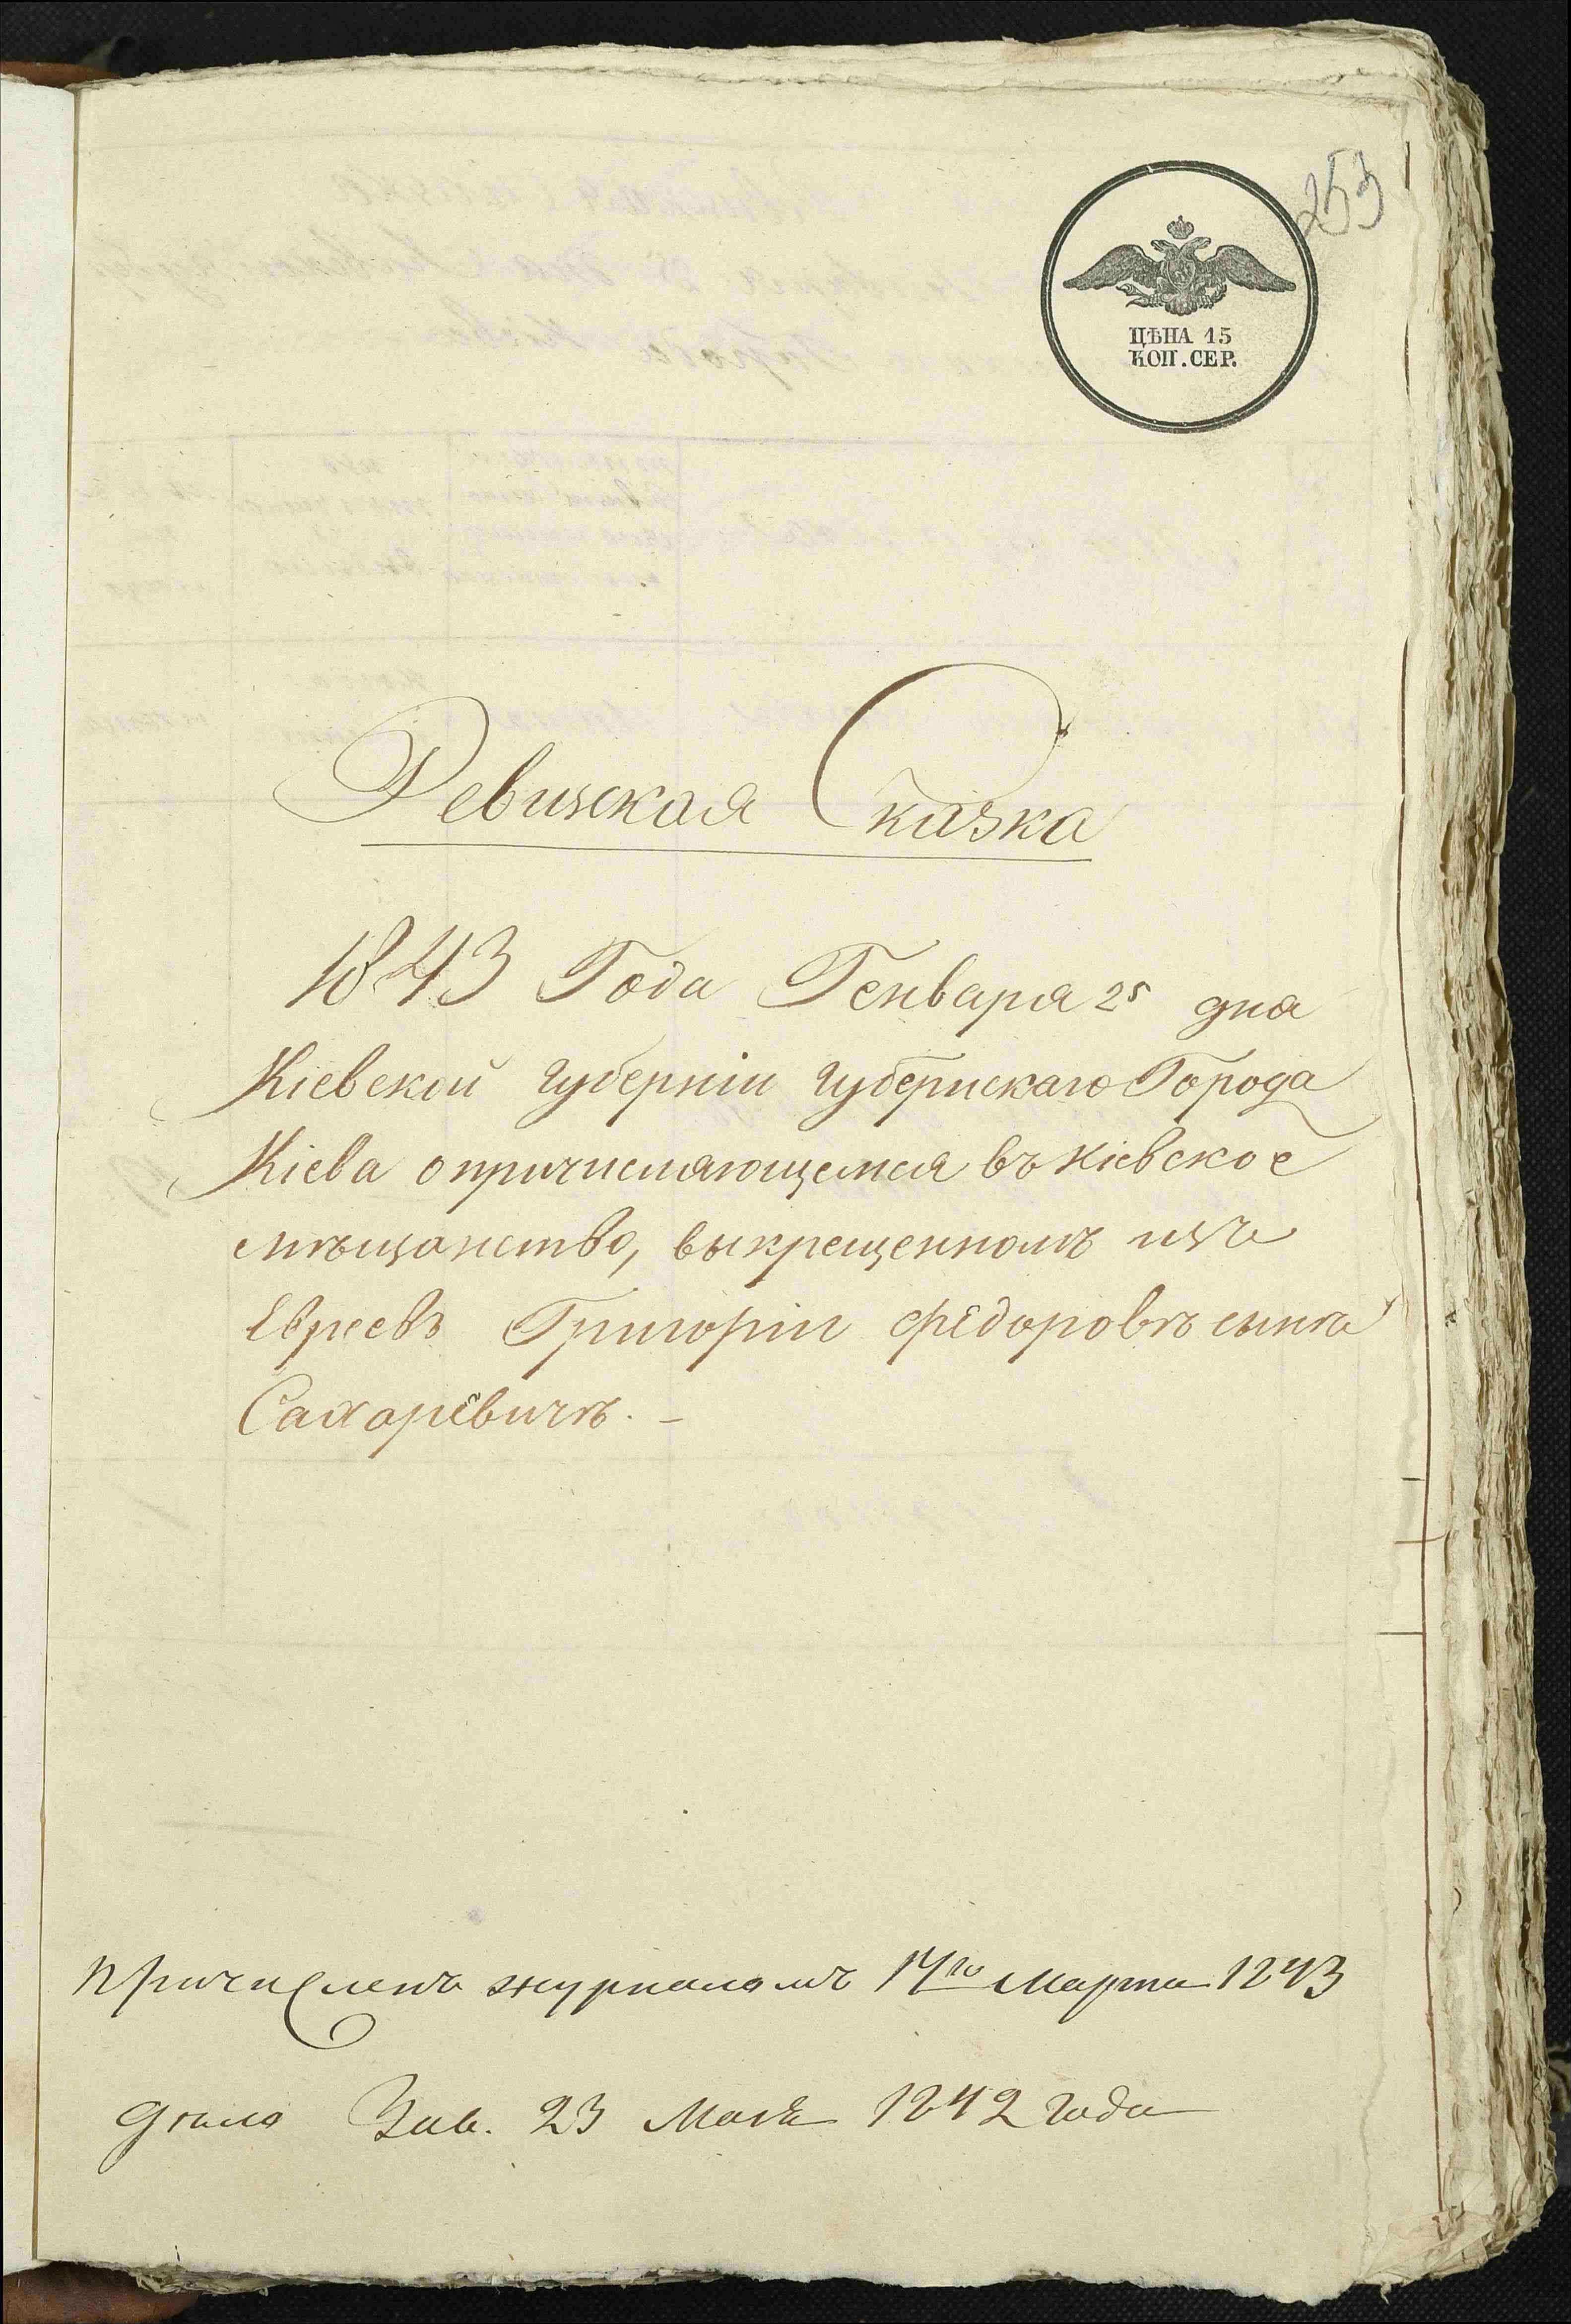 253
ЦѢНА 15
КОП. СЕР.
Ревизская Сказка
1843 Года Генваря 25 дня
Кіевской губерніи губернскаго Города
Кіева о причисляющемся въ кіевское
мѣщанство, выкрещенномъ изъ
Евреевъ Григоріи Федоровѣ сынѣ
Сахоревичѣ. -
Причисленъ журналомъ 17го Марта 1843
дѣло Зав. 23 Маія 1842 года